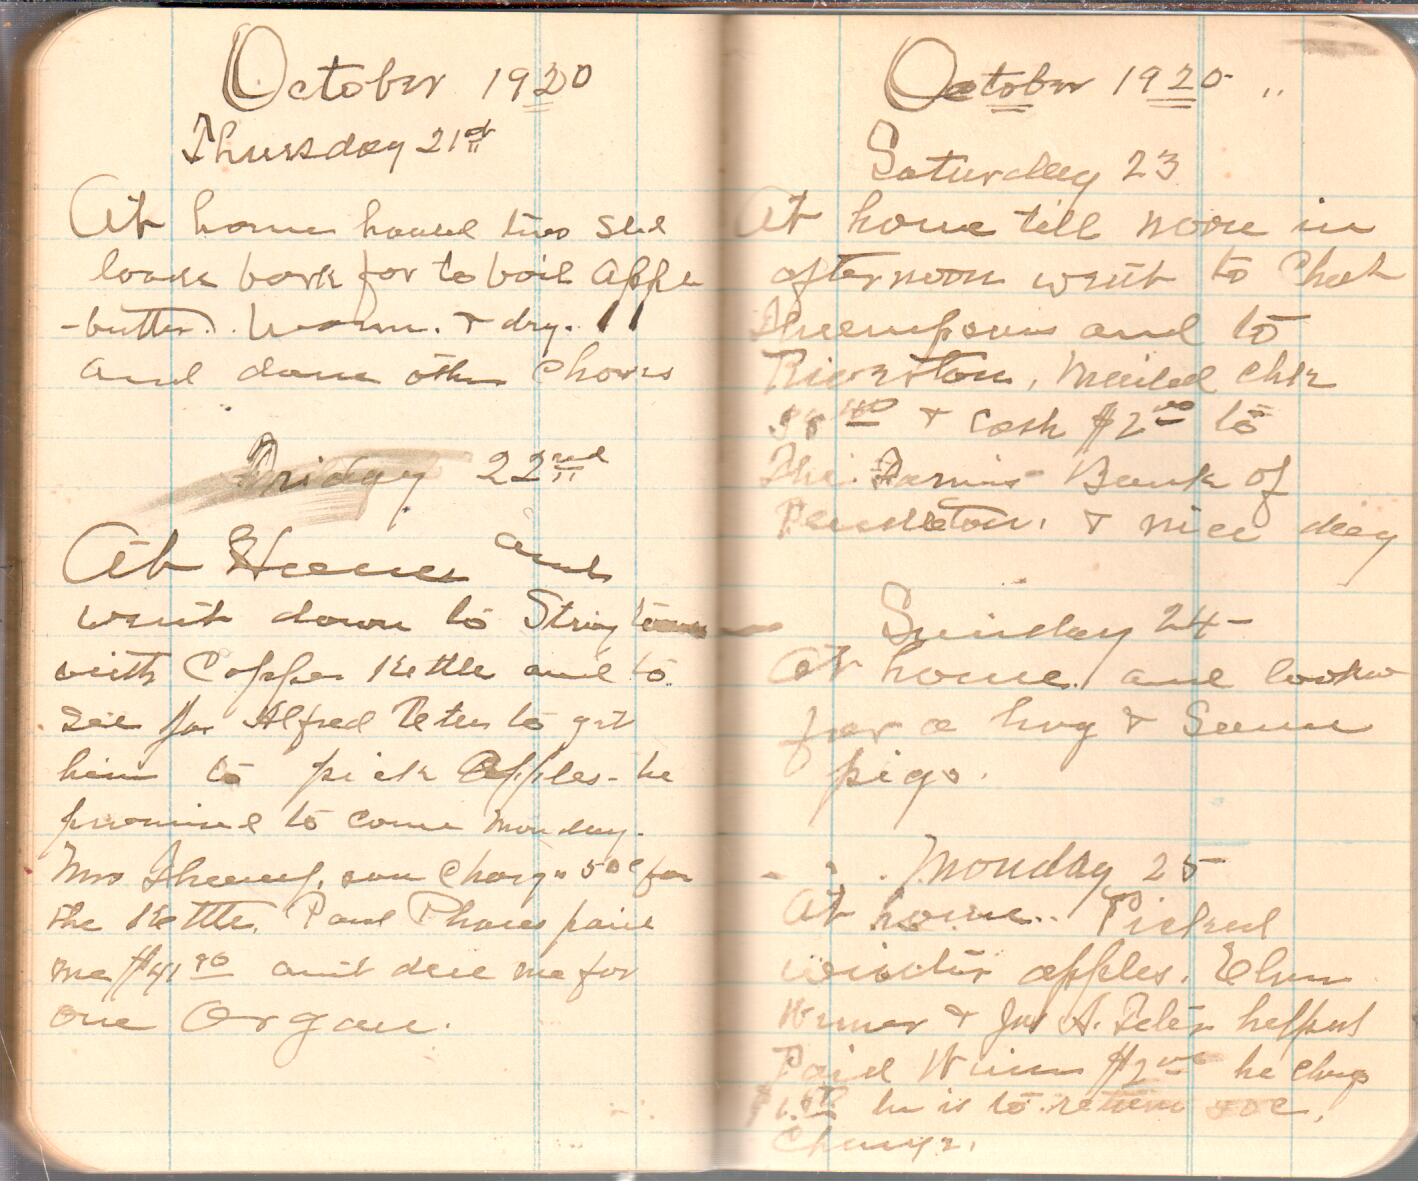 October 1920
Thursday 21st
At home hauled two sled
loads bark for to boil apple
-butter. Warm. & dry.
and done other chores
Friday 22nd
At Home and
went down to Stringtown
with Copper Kettle and to
see Jas Alfred Peters to get
him to pick Apples - he
promised to come Monday.
Mrs Thompson charge 50c for
the Kettle. Paul Phares paid
me $41.80 amt due me for
one Organ.
October 1920
Saturday 23
At home till noon in
afternoon went to Chat
Thompsons and to
Riverton, Mailed chk
38.40 & cash $2.00 to
The Farmers Bank of
Pendleton. & nice day
Sunday 24-
At home and look
for a hog & Seven
pigs.
Monday 25
At home. Picked
winter apples.
& Jas A. Peters helped
Paid $2.00 he
he is to return 50c.
Change.